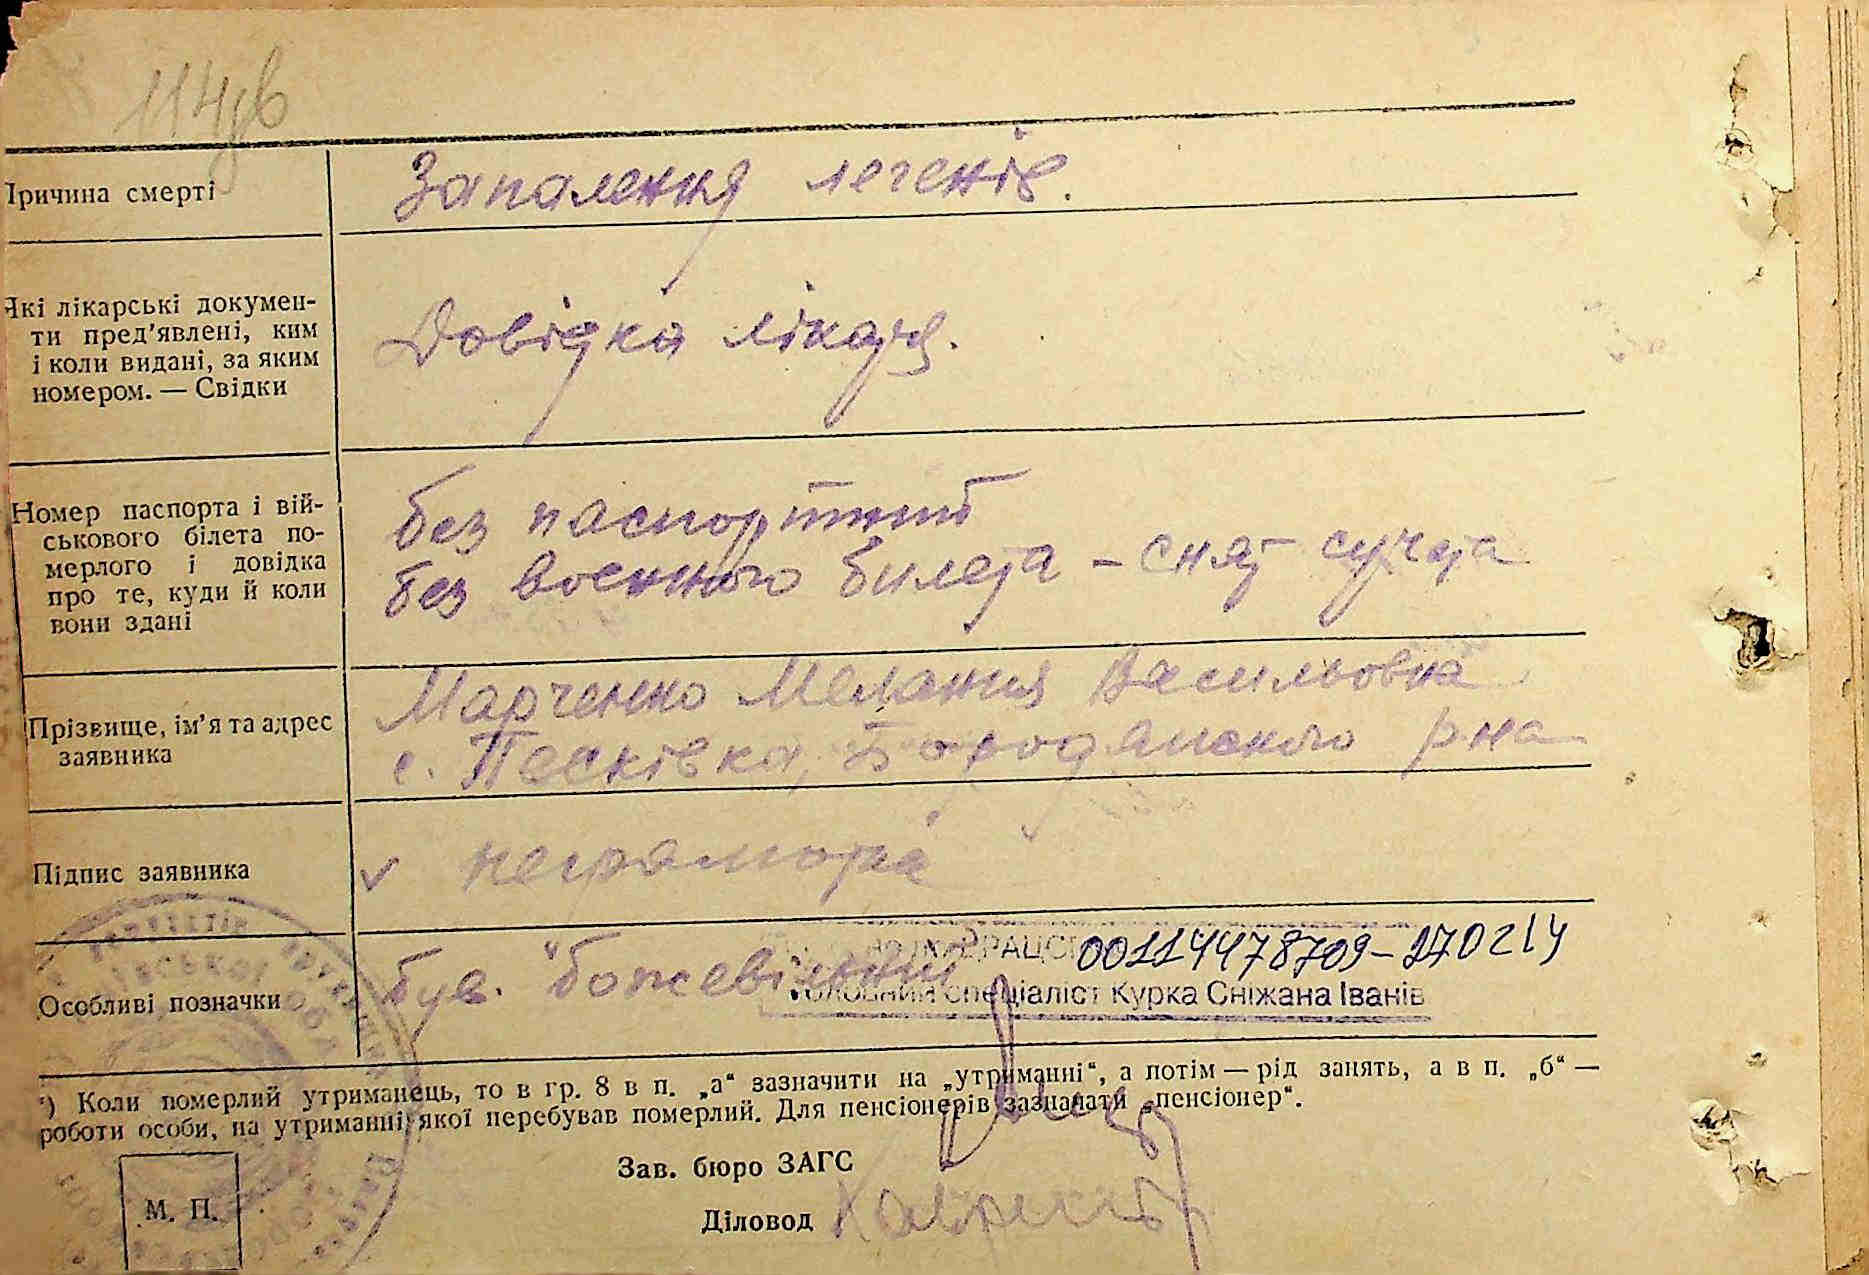 114
Причина смерті
Запалення легенів.
Які лікарські докумен-
ти пред'явлені, ким
і коли видані, за яким
номером. — Свідки
Довідка лікаря.
Номер паспорта і вій-
ськового білета по-
мерлого і довідка
про те, куди й коли
вони здані
без паспортний
без военного билета – снят с учета
Прізвище, ім'я та адрес
заявника
Марченко Мелания Васильовна
с. Песківка, Бородянского р-на
Підпис заявника
✓ неграмотна
Особливі позначки
був. "божевільний
ДРАЦС 00114478709-270214
Головний спеціаліст Курка Сніжана Іванів
*) Коли померлий утриманець, то в гр. 8 в п. „а“ зазначити на „утриманні“, а потім — рід занять, а в п. „б“ —
роботи особи, на утриманні якої перебував померлий. Для пенсіонерів зазначати „пенсіонер“.
Зав. бюро ЗАГС
М. П.
Діловод